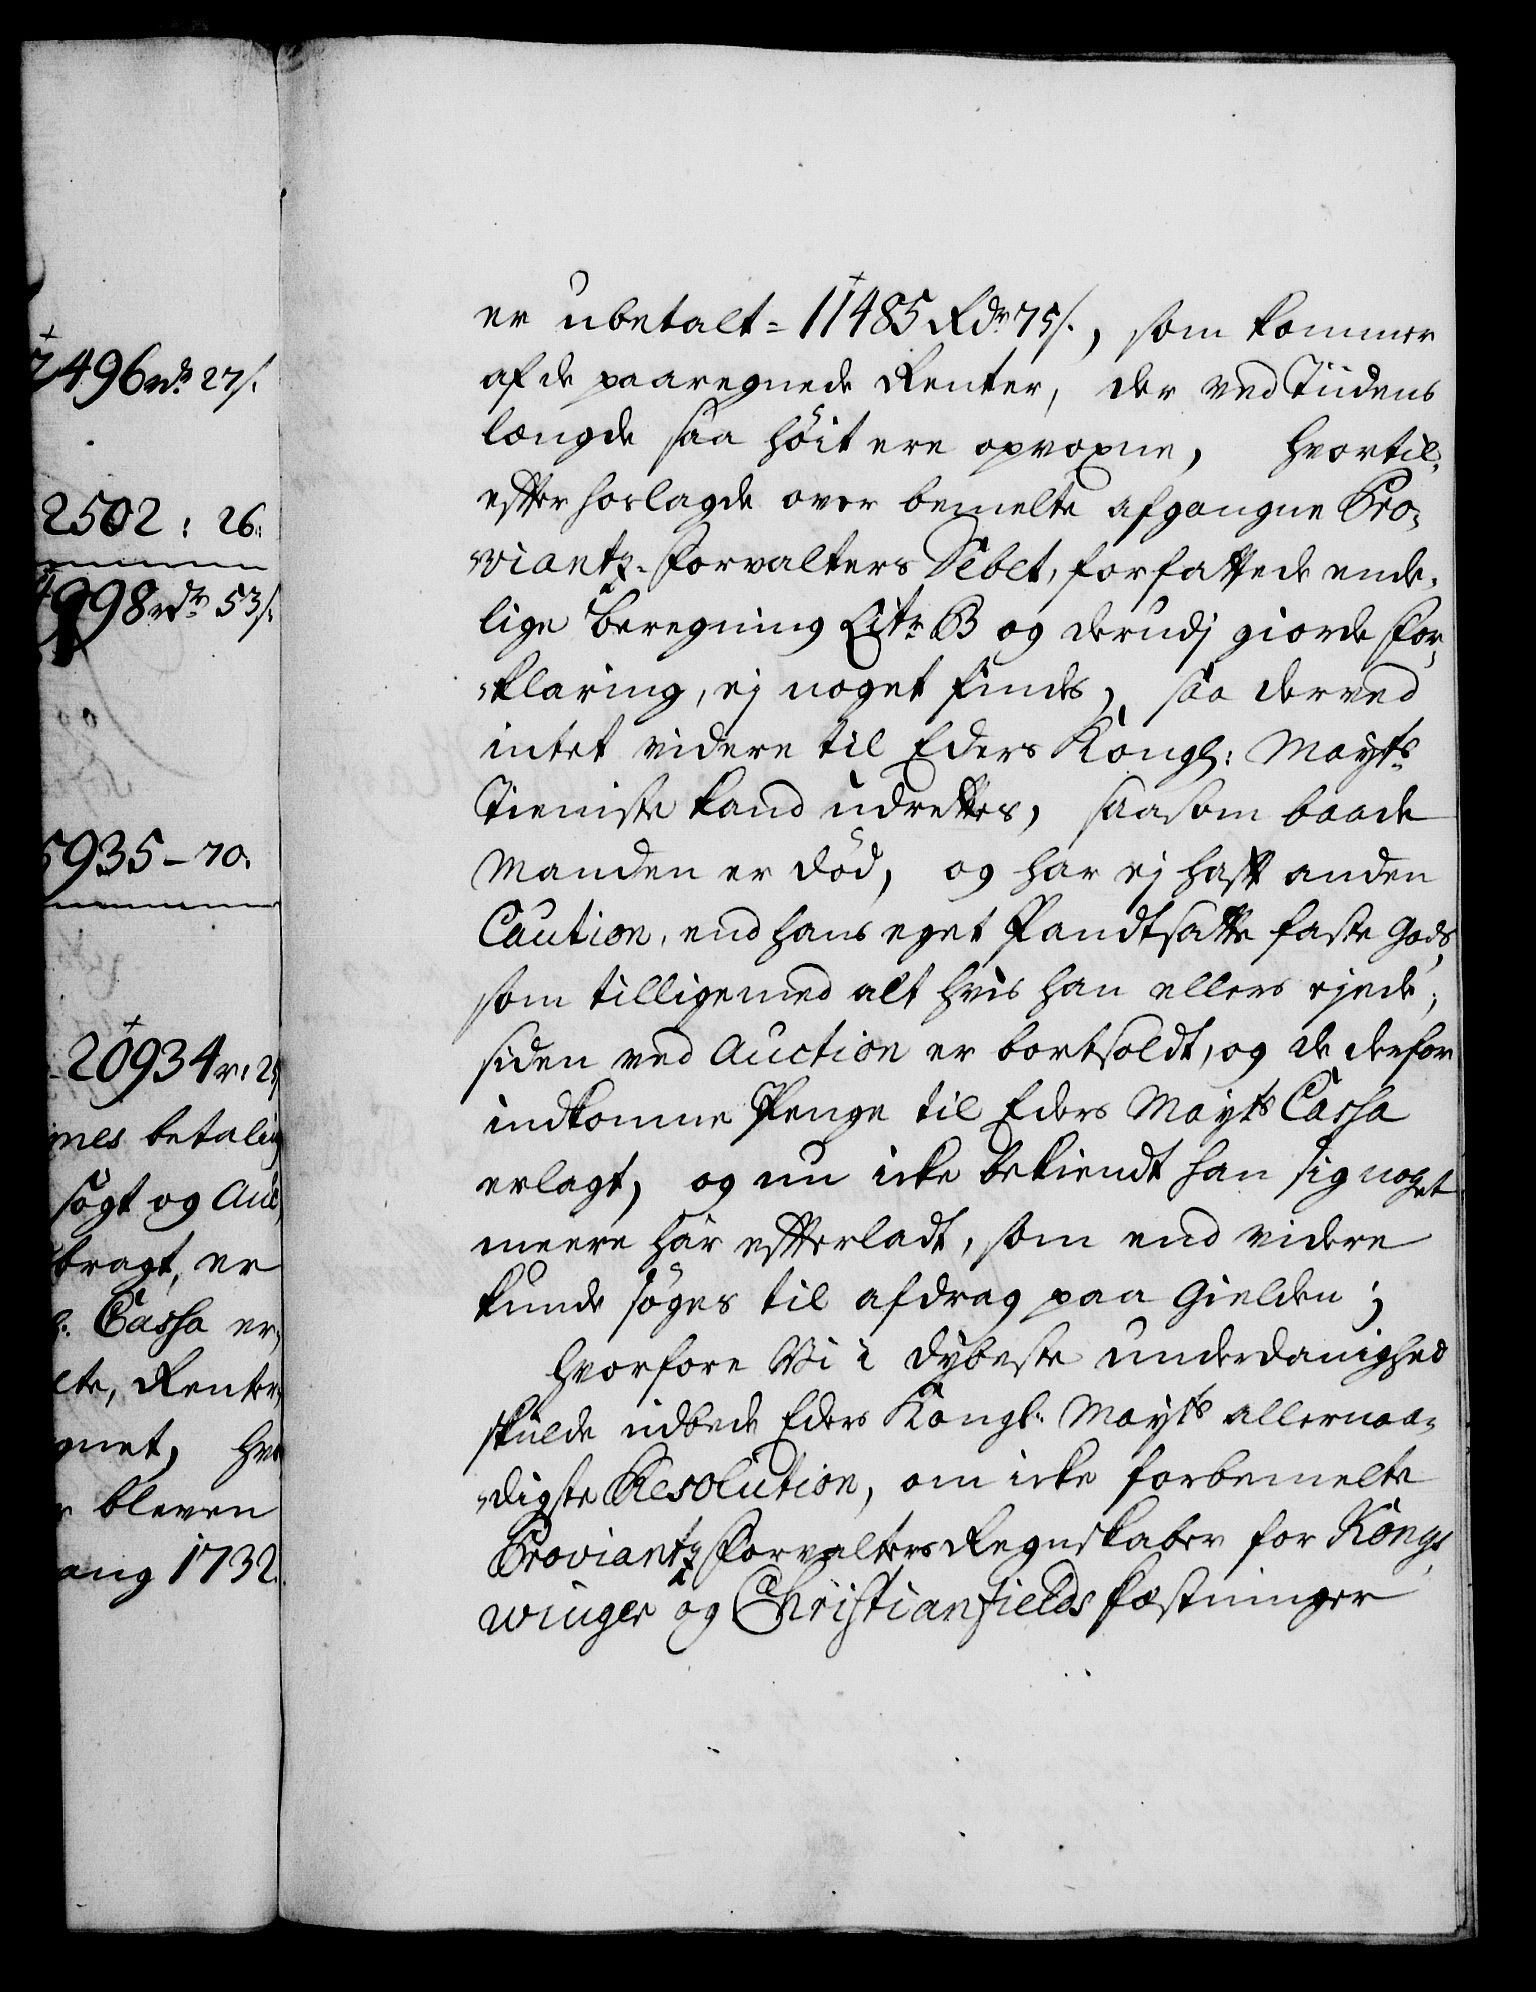 2496 rdr 27/.
2502 : 26:
998 rdr 53/.
5935 – 70.
20934 r: 25
mes betaling
søgt og Auc
bragt, er
Cassa er,
lte, Renter
gnet, hvo
bleven
ang 1732.
er ubetalt = 11485 Rdr 75/., som kommer
af de paaregnede Renter, der ved Tiidens
længde saa höit ere opvoxne, hvortil,
effter hoslagde over bemelte afgangne Pro,
viantz-Forvalters Debet, forfattede ende,
lige beregning Litr B og derudj giorde For,
klaring, ej noget findes, saa derved
intet videre til Eders Kongl: Mayts
Tieniste kand udrettes, saasom baade
Manden er död, og har ej hafft anden
Caution, end hans eget Pandtsatte faste Gods,
som tilligemed alt hvis han ellers ejede,
siden ved Auction er bortsoldt, og de derfor
indkomne Penge til Eders Mayts Cassa
erlagt, og nu icke bekiendt han sig noget
meere har efterladt, som end videre
kunde söges til afdrag paa Gielden;
Hvorfore Vi i dybeste underdanighed
skulde udbede Eders Kongl: Mayts allernaa,
digste Resolution, om icke forbemelte
Proviantz Forvalters Regnskaber for Kongs,
winger og Christianfields Fæstninger